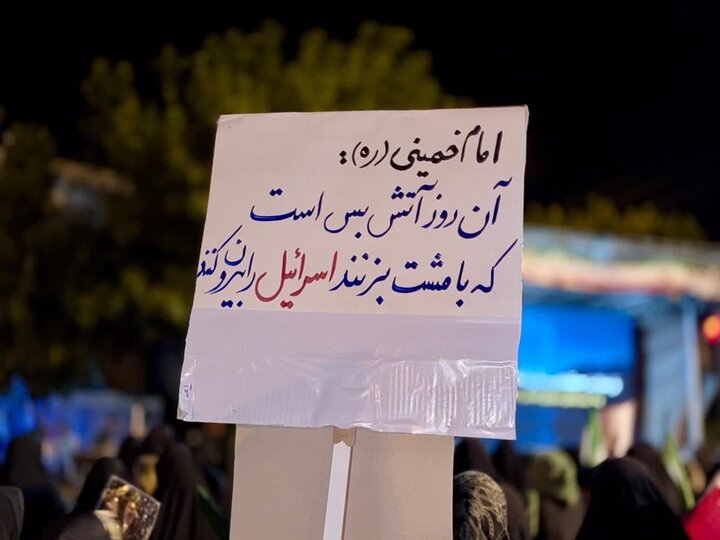 امام خمینی (ره):
آن روز آتش بس است
که با مشت بزنند اسرائیل را بیرون کنند